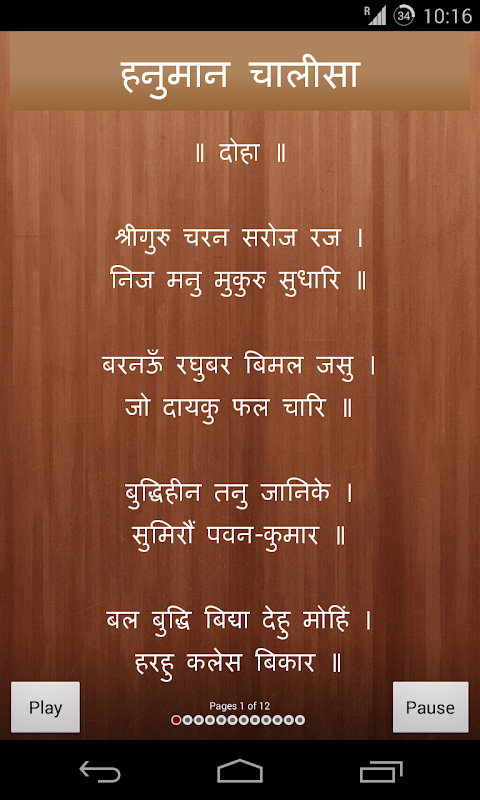 R 34 10:16
हनुमान चालीसा
॥ दोहा ॥
श्रीगुरु चरन सरोज रज ।
निज मनु मुकुरु सुधारि ॥
बरनऊँ रघुबर बिमल जसु ।
जो दायकु फल चारि ॥
बुद्धिहीन तनु जानिके ।
सुमिरौं पवन-कुमार ॥
बल बुद्धि बिद्या देहु मोहिं ।
हरहु कलेस बिकार ॥
Play
Pages 1 of 12
Pause